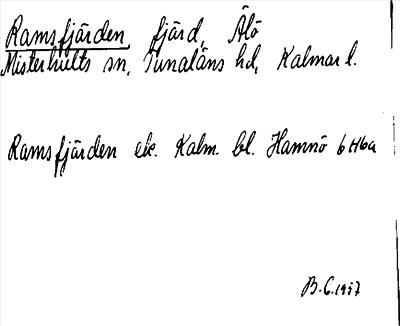 Ramsfjärden, fjärd, Älö
Misterhults sn, Tunaläns hd, Kalmar l.
Ramsfjärden ek. Kalm. bl. Hamnö 6 H6a
B.C. 1957